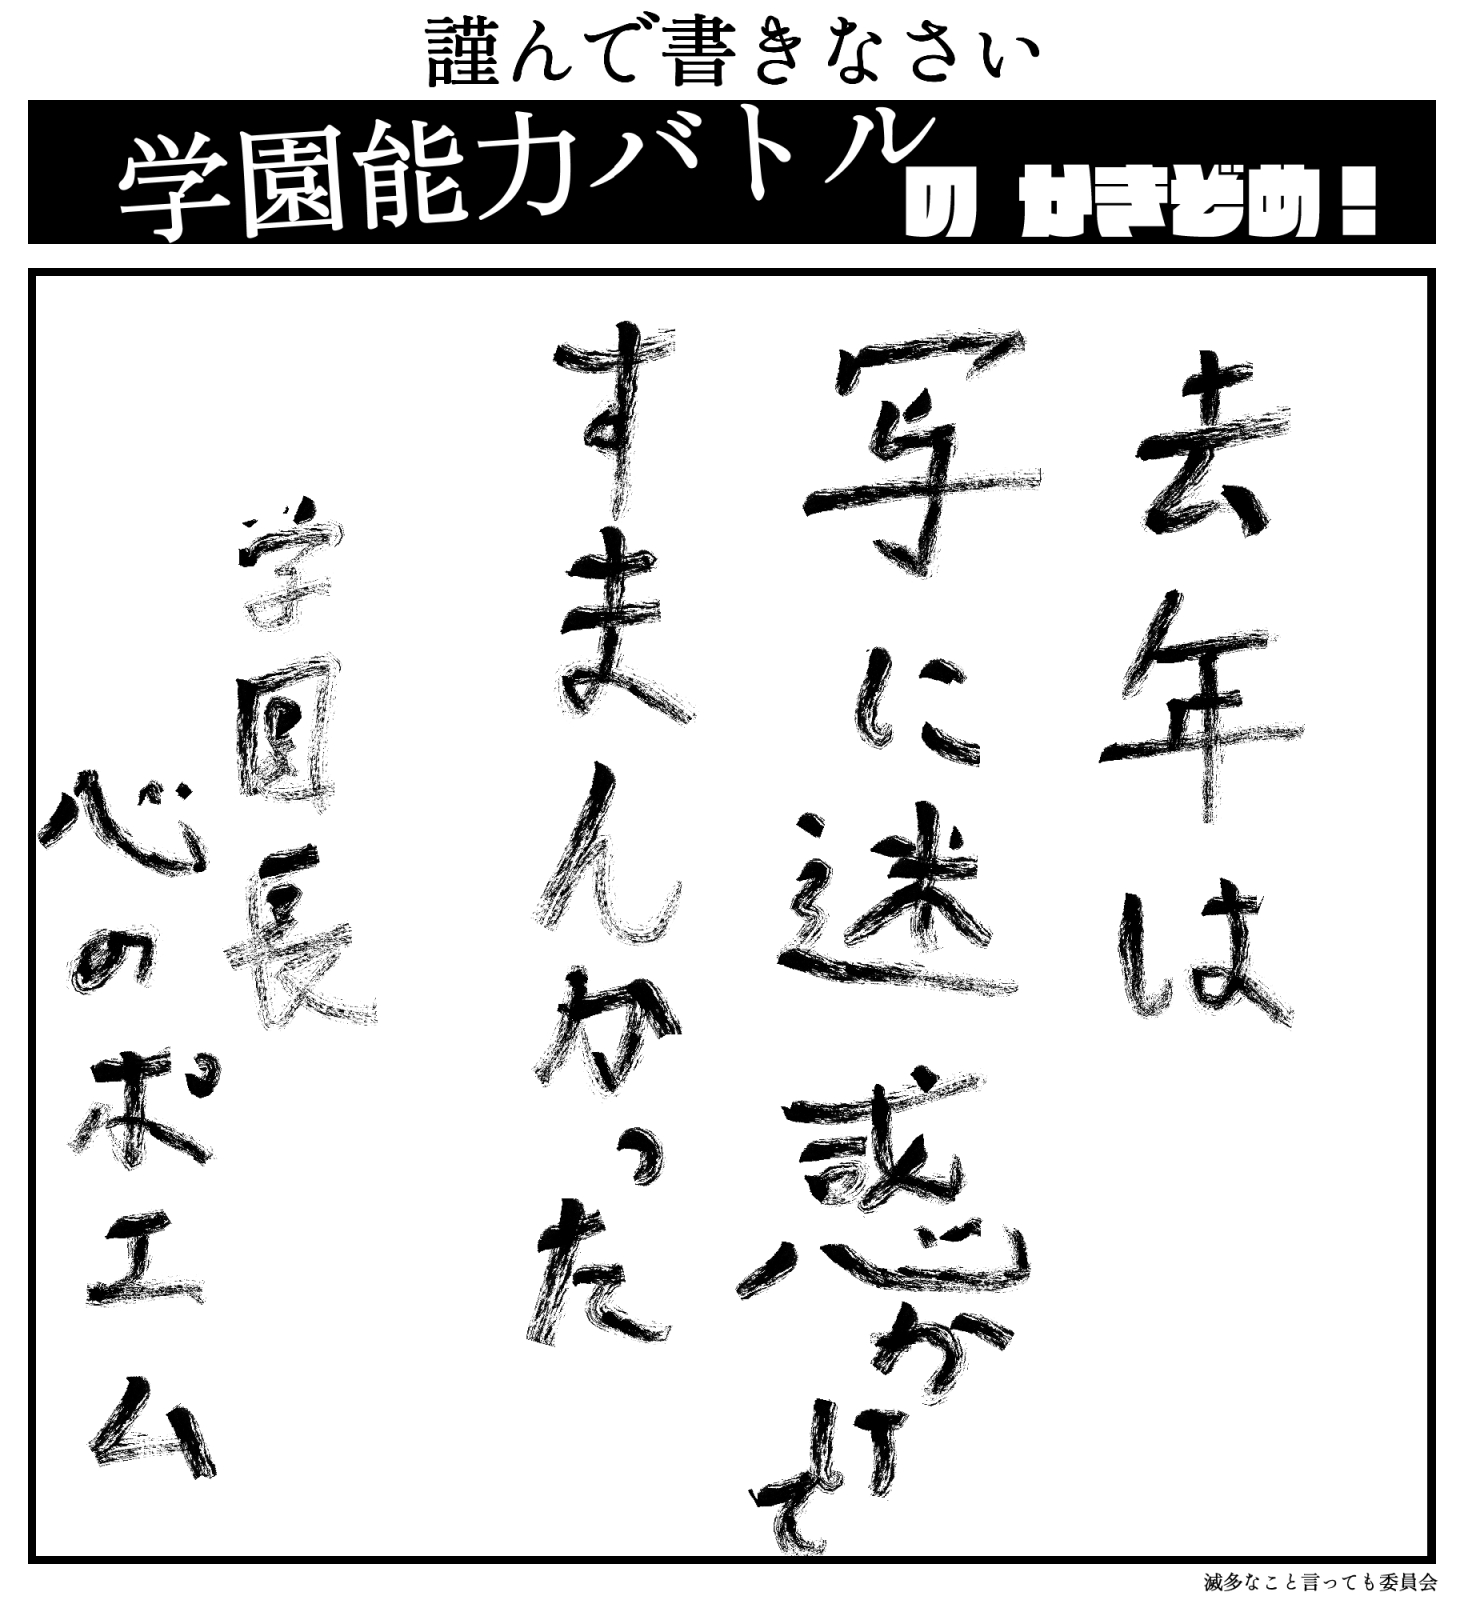 謹んで書きなさい
学園能力バトルの かきぞめ！
去年は
写に迷惑かけて
すまんかった
学園長
心のポエム
滅多なこと言っても委員会